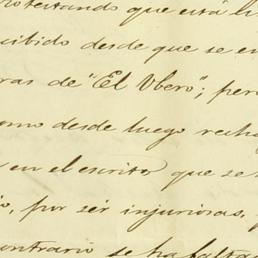 protestando que está li
cibido desde que se en
ras de "El Ubero"; per
omo desde luego recha
en el escrito que se h
o, por ser injuriosas,
contrario se ha faltad